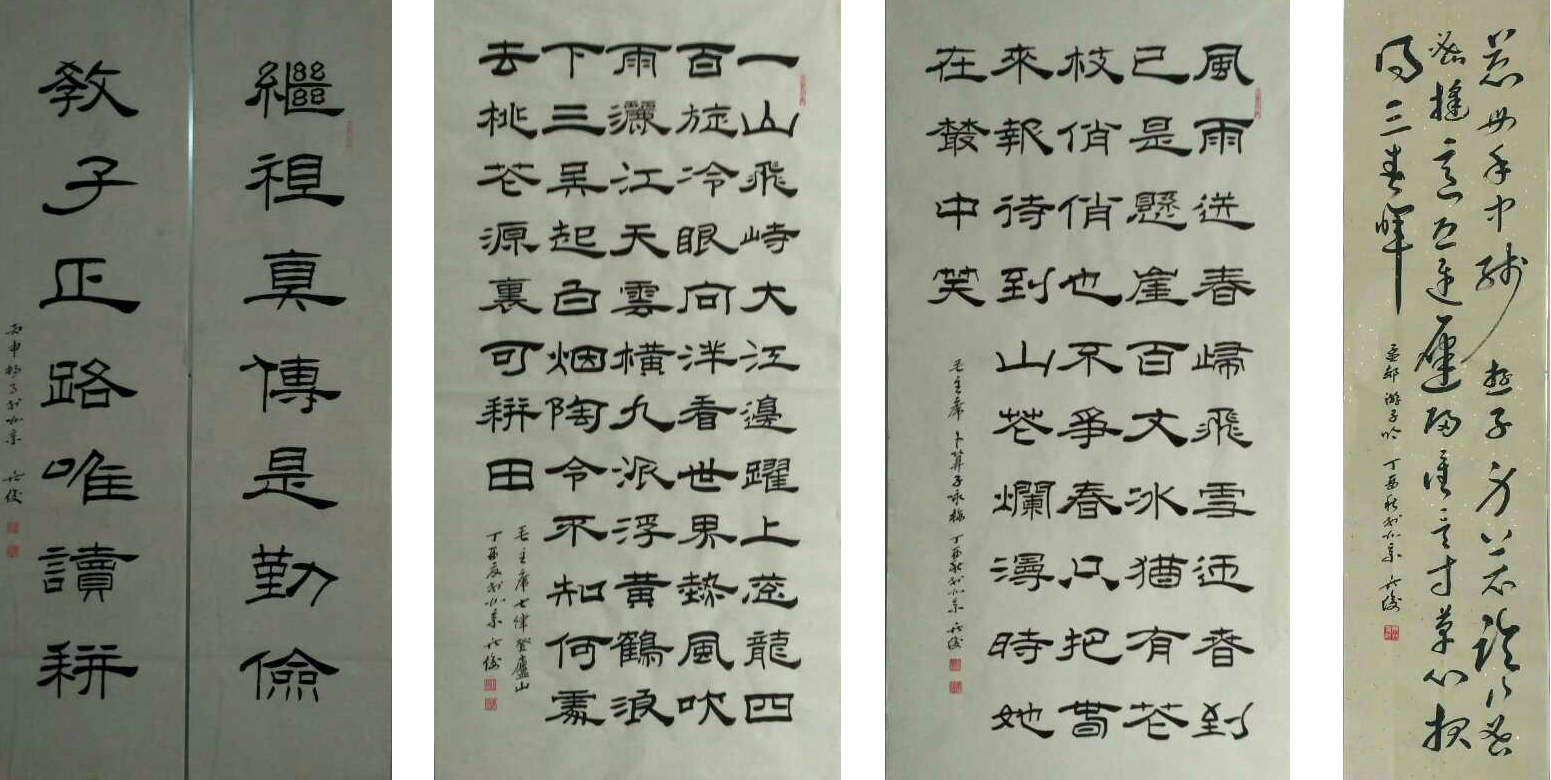 繼祖真傳是勤儉
教子正路唯讀耕
丙申於北京
一山飛峙大江邊躍上蔥龍四
百旋冷眼向洋看世界熱風吹
雨灑江天雲橫九派浮黃鶴浪
下三吳起白烟陶令不知何處
去桃花源裏可耕田
毛主席七律登廬山
丁酉於北京
風雨送春歸飛雪迎春到
已是懸崖百丈冰猶有花
枝俏俏也不爭春只把春
來報待到山花爛漫時她
在叢中笑
毛主席 卜算子咏梅 丁酉秋於北京
慈母手中线 游子身上衣临行密
密縫意恐遲遲歸誰言寸草心报
得三春暉
孟郊 游子吟 丁酉秋於北京